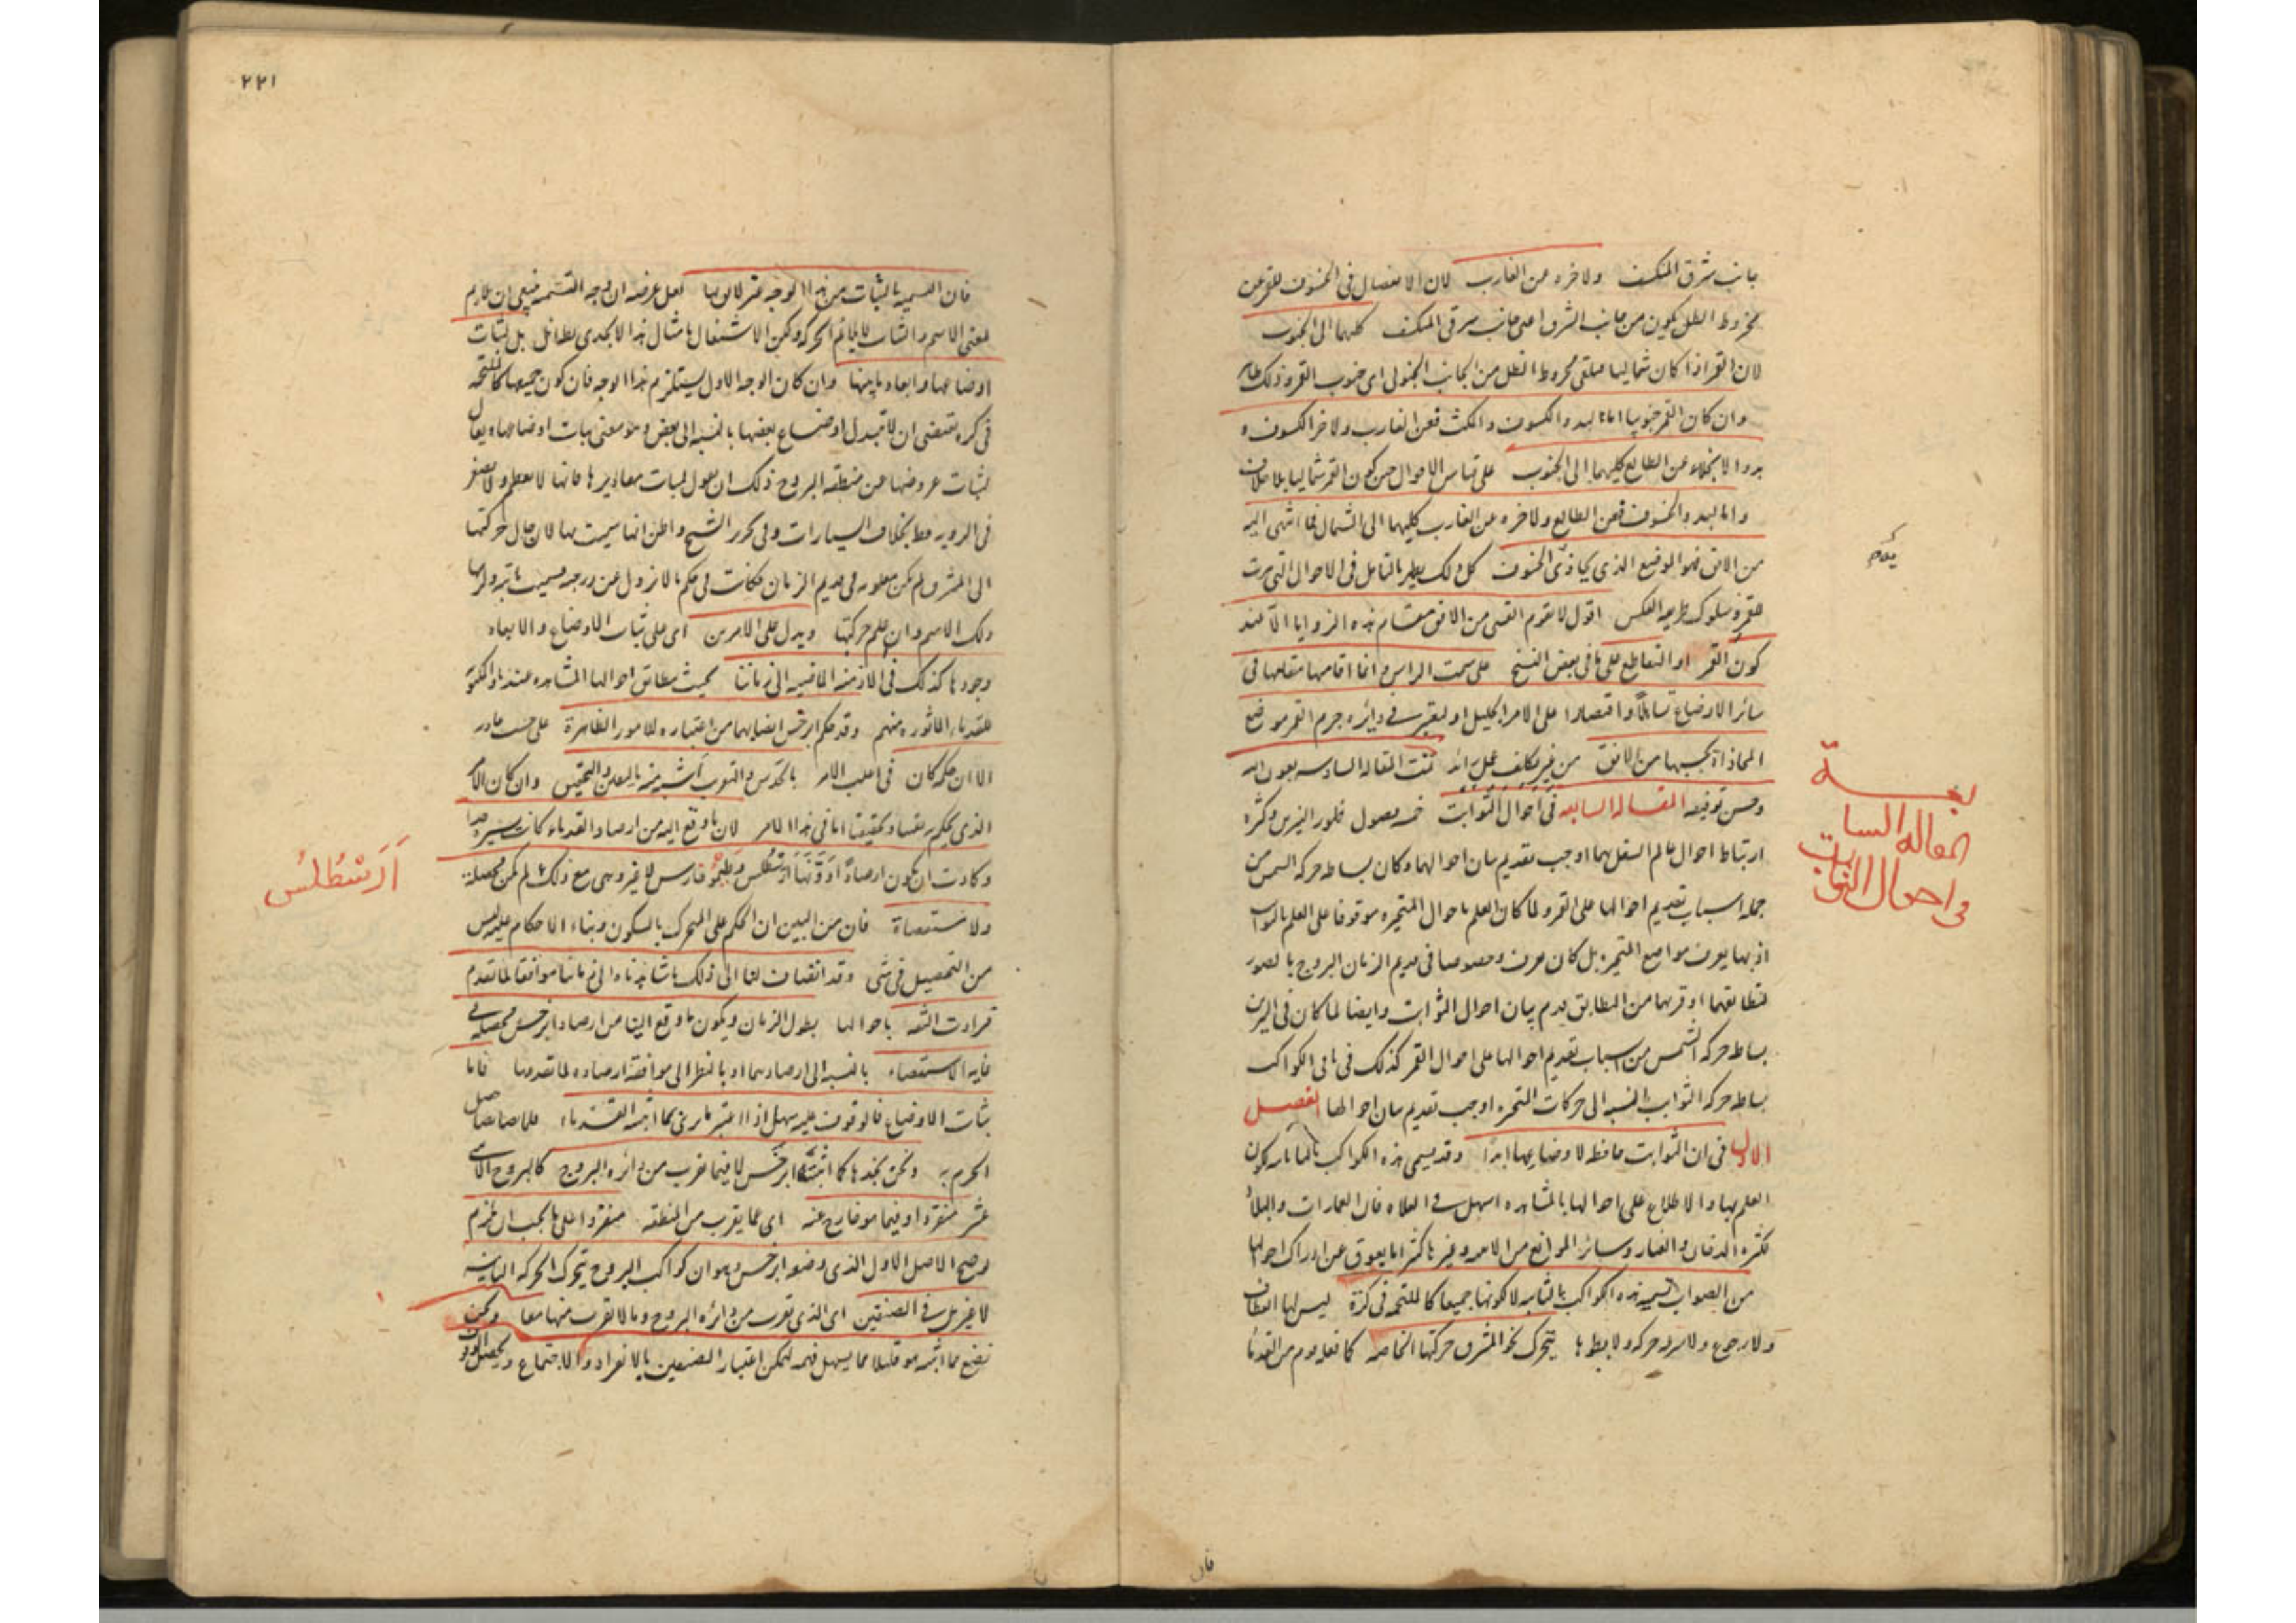 جانب شرق المنكسف ولآخره عن الغارب لان الانفصال في الخسوف للقمر عن
مخروط الظل يكون من جانب الشرق اعنى جانب شرقى المنكسف كليهما الى الجنوب
لان القمر اذا كان شماليا مخروط الظل من الجانب الجنوبى اى جنوب القمر وذلك ظاهر
وان كان القمر جنوبيا اما لبدو الكسوف والمكث فعن الغارب ولآخر الكسوف و
بدو الانجلاء عن الطالع كليهما الى الجنوب على قياس الاحوال حين كون القمر شماليا بلا خلاف
واما لبدو الخسوف فعن الطالع ولآخره عن الغارب كليهما الى الشمال فما انتهى اليه
من الافق فهو الموضع الذى يحاذى الخسوف كل ذلك يظهر بالتامل فى الاحوال التى مرت
للقمر وسلوك طريق العكس اقول لا تقوم القسى من الافق مقام هذه الزوايا الا عند
كون القمر او التقاطع على ما فى بعض النسخ على سمت الراس وانما اقامها مقامها فى
سائر الاوضاع تساهلا واقتصارا على الامر الجليل او ليعتبر فى دائرة جرم القمر موضع
المحاذاة بحسبها من الافق من غير تكلف عمل زائد تمت المقالة السادسة بعون الله
وحسن توفيقه المقالة السابعة فى احوال الثوابت خمسة فصول ظهور النيرين وكثرة
ارتباط احوال عالم السفل بهما اوجب تقديم بيان احوالهما وكان بساطة حركة الشمس من
جملة اسباب تقديم احوالها على القمر ولما كان العلم باحوال المتحيرة موقوفا على العلم بالثوابت
اذ بها يعرف مواضع المتحيرة بل كان يعرف وخصوصا فى قديم الزمان البروج بالصور
لتطابقهما او قربهما من التطابق قدم بيان احوال الثوابت وايضا لما كان فى النيرين
بساطة حركة الشمس من اسباب تقديم احوالها على احوال القمر كذلك فى باقى الكواكب
بساطة حركة الثوابت بالنسبة الى حركات المتحيرة اوجب تقديم بيان احوالها الفصل
الاول فى ان الثوابت حافظة لاوضاعها ابدا وقد يسمى هذه الكواكب
العلم بها والاطلاع على احوالها بالمشاهدة اسهل فى الفلاة فان العمارات والبلاد
لكثرة الدخان والغبار وسائر الموانع من الامور وغيرها كثيرا ما يعوق عن ادراك احوالها
من الصواب تسمية هذه الكواكب بالثابتة لكونها جميعا كالملتحمة فى كرة ليس لها
ولا رجوع ولا سرعة حركة ولا بطؤها يتحرك نحو المشرق حركتها الخاصة كما فعله قوم من القدماء
المقالة السابعة
فى احوال الثوابت
فان
٢٢١
فان التسمية بالثبات من هذا الوجه غير لائق بها لعل غرضه ان وجه التسمية ينبغى ان يلازم
لمعنى الاسم والثبات لا يلائم الحركة ولكن الاشتغال بامثال هذا لا يجدى بطائل بل لثبات
اوضاعها وابعاد ما بينها وان كان الوجه الاول يستلزم هذا الوجه فان كون جميعها كالملتحمة
فى كرة يقتضى ان لا تتبدل اوضاع بعضها بالنسبة الى بعض وهو معنى ثبات اوضاعها
لثبات عروضها عن منطقة البروج ذلك ان يقول لثبات مقاديرها فانها لا تعظم ولا تصغر
فى الرؤية قط بخلاف السيارات وفى محرر الشيخ واظن انها سميت بها لان حال حركتها
الى المشرق لم يكن معلومة فى قديم الزمان فكانت فى حكم ما لا تزول عن درجة فسميت
ذلك الاسم وان علم حركتها ويدل على الامرين اى على ثبات الاوضاع والابعاد
وجودها كذلك فى الازمنة الماضية الى زماننا بحيث تطابق احوالها المشاهدة عندنا
للقدماء الماثورة منهم وقد حكم ابرخس ايضا بهما من اعتباره للامور الظاهرة على حسب ما قدر
الا ان حكمه كان فى اغلب الامر بالحدس والتقريب اشبه منه باليقين والتحقيق وان كان الامر
الذى يحكم به نفسا وحقيقيا اما فى هذا الامر لان ما وقع اليه من ارصاد القدماء كانت يسيرة جدا
وكادت ان يكون ارصادا ارسطلس وطيموخارس لا غير وهى مع ذلك لم تكن محصلة
ولا مستقصاة فان من البين ان الحكم على المتحرك بالسكون وبناء الاحكام عليه ليس
من التحصيل فى شئ وقد انضاف لنا الى ذلك ما شاهدناه فى زماننا موافقا لما تقدم
فزادت الثقة باحوالها بطول الزمان ويكون ما وقع الينا من ارصاد ابرخس محصلة فى
غاية الاستقصاء بالنسبة الى ارصادهما او بالنظر الى موافقة ارصاده لما تقدمها فاما
ثبات الاوضاع فالوقوف عليه سهل اذا اعتبر ما رئى بما اثبته القدماء
الحزم به ونحن نجدها كما اثبتها ابرخس لا فيما يقرب من دائرة البروج كالبروج الاثنى
عشر منفردا او فيما هو خارج عنه اى عما يقرب من المنطقة منفردا على ما يجب ان يلزم
وضع الاصل الاول الذى وضعه ابرخس وهو ان كواكب البروج يتحرك الحركة الثانية
لا غير بل فى الصنفين اى الذى تقرب من دائرة البروج وما لا تقرب منها معا ونحن
نضع مما اثبته هو قليلا مما يسهل فهمه ليمكن اعتبار الصنفين بالانفراد والاجتماع
اَرَسْطُلُس